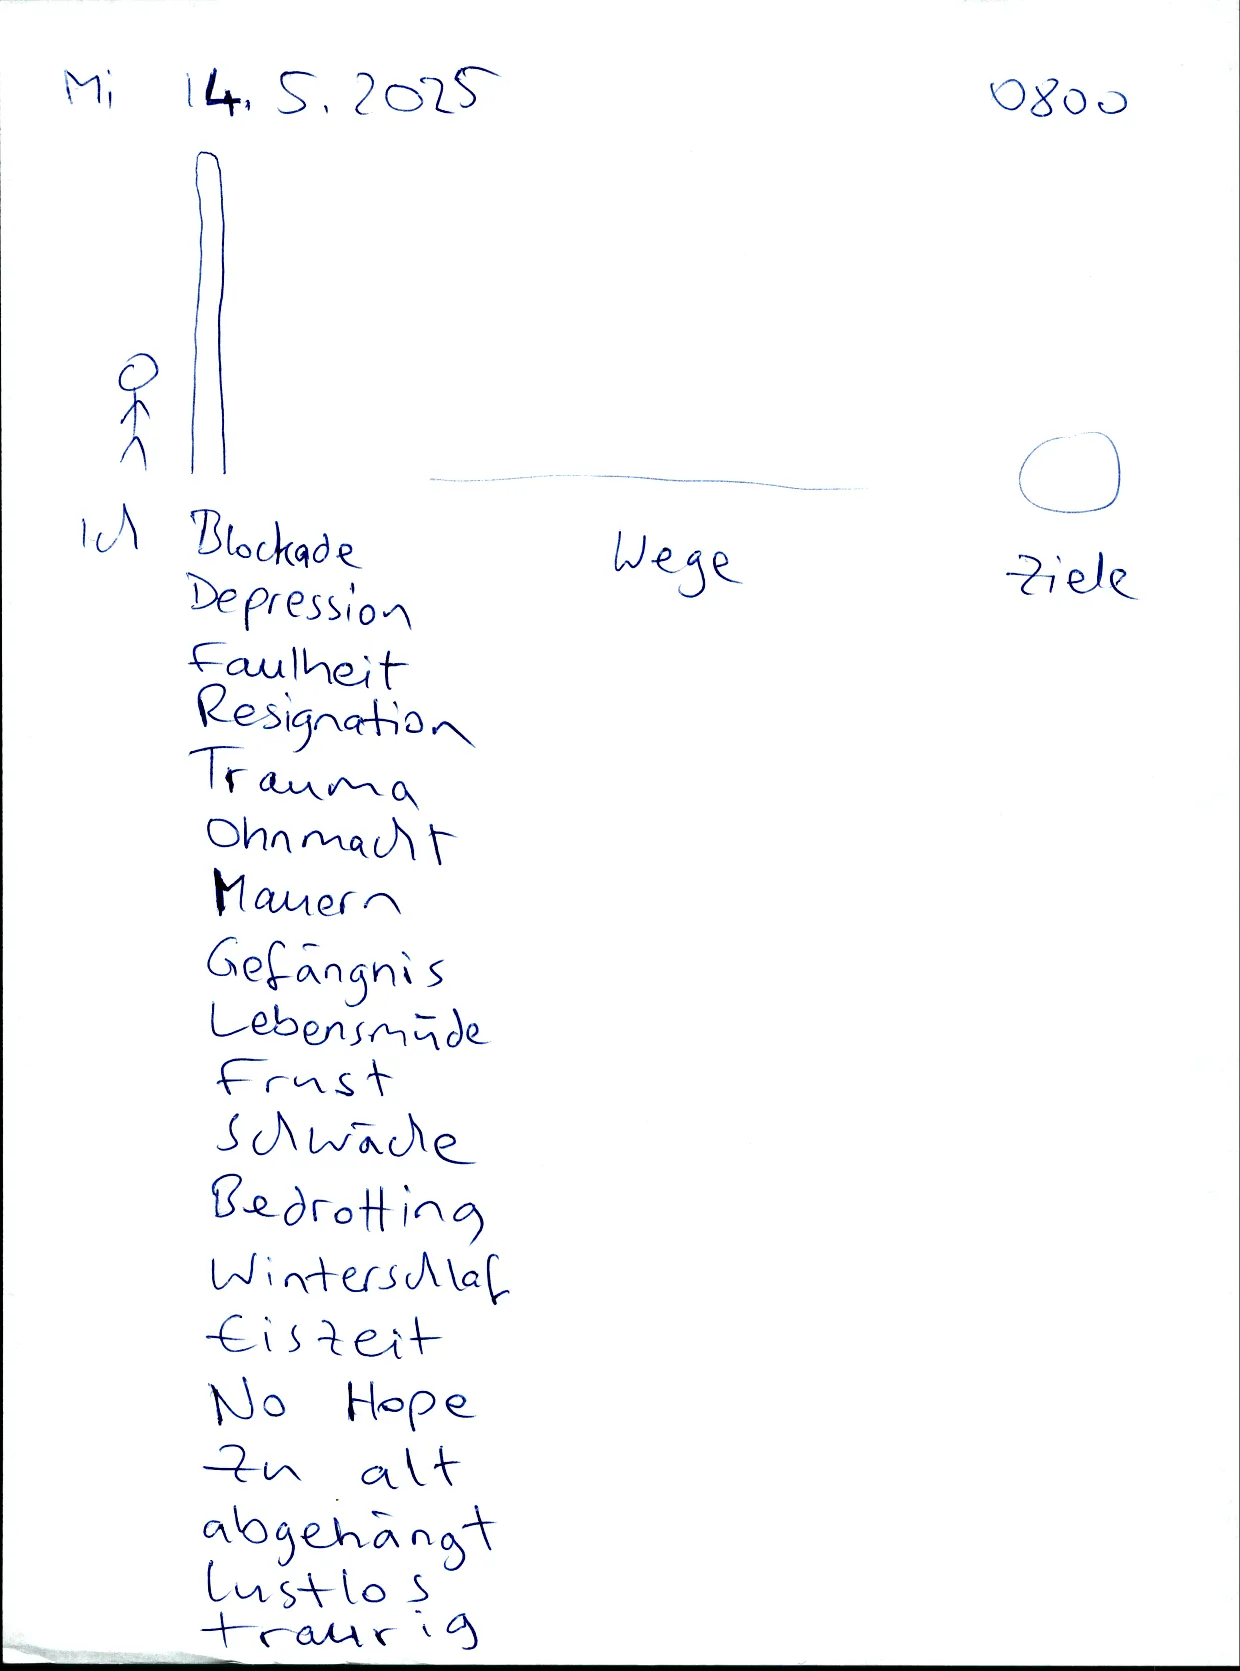 Mi 14.5.2025 0800
Ich Blockade Wege Ziele
Depression
Faulheit
Resignation
Trauma
Ohnmacht
Mauern
Gefängnis
Lebensmüde
Frust
Schwäche
Bedrotting
Winterschlaf
Eiszeit
No Hope
Zu alt
abgehängt
lustlos
traurig